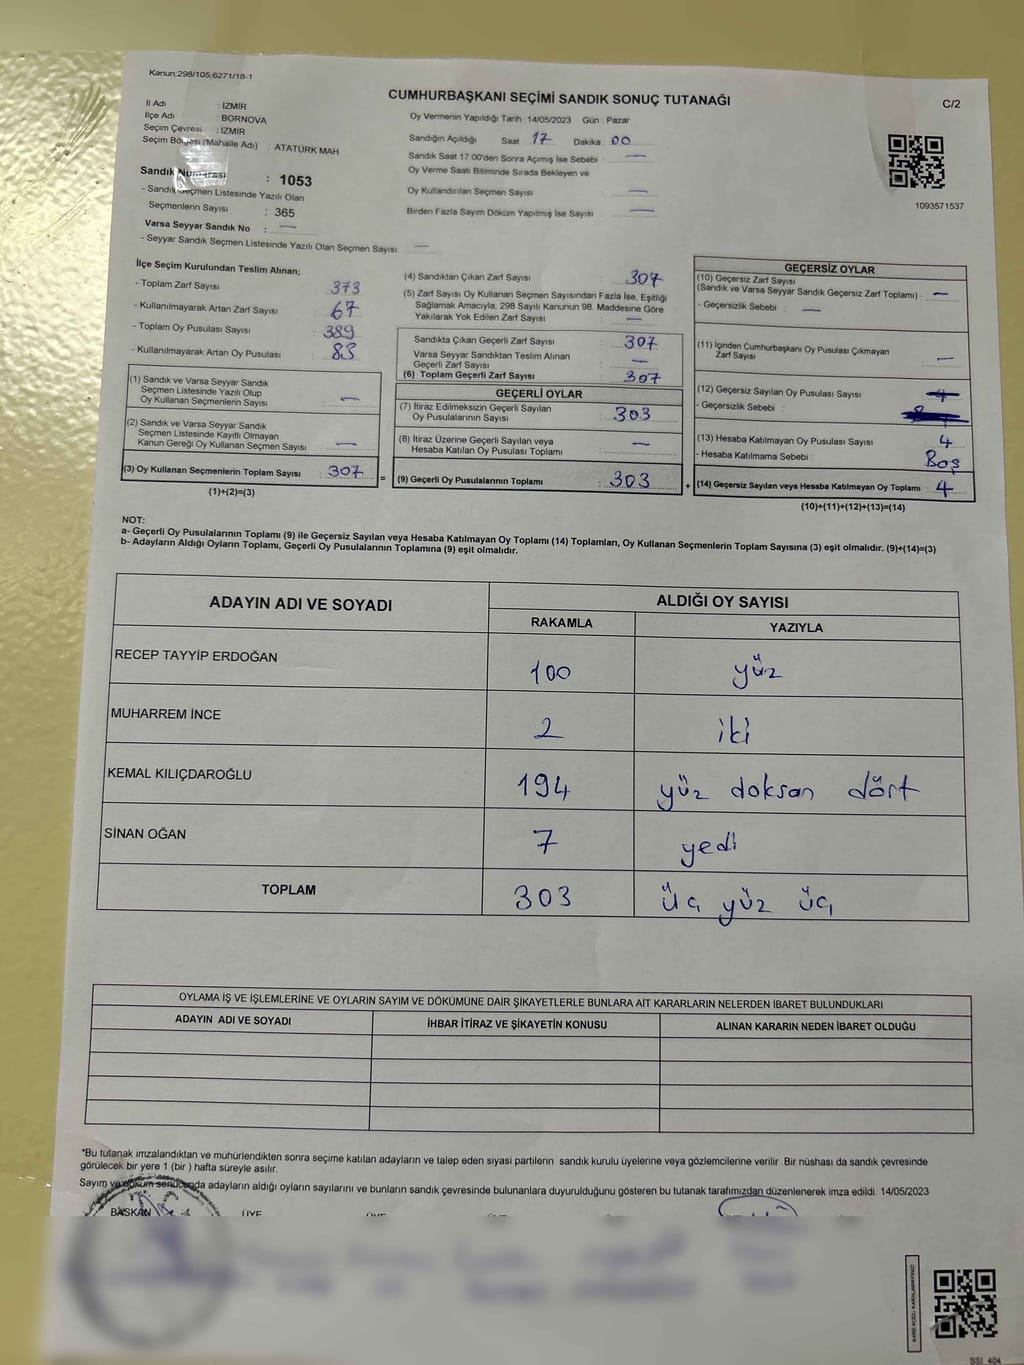 Kanun;298/105;6271/18-1
CUMHURBAŞKANI SEÇİMİ SANDIK SONUÇ TUTANAĞI
C/2
İl Adı : İZMİR
İlçe Adı : BORNOVA
Seçim Çevresi : İZMİR
Seçim Bölgesi (Mahalle Adı) : ATATÜRK MAH.
Sandık Numarası : 1053
- Sandık Seçmen Listesinde Yazılı Olan
Seçmenlerin Sayısı : 365
Varsa Seyyar Sandık No : —
- Seyyar Sandık Seçmen Listesinde Yazılı Olan Seçmen Sayısı: —
Oy Vermenin Yapıldığı Tarih : 14/05/2023 Gün : Pazar
Sandığın Açıldığı Saat 17 Dakika 00
Sandık Saat 17:00'den Sonra Açımış İse Sebebi : —
Oy Verme Saati Bitiminde Sırada Bekleyen ve
Oy Kullandırılan Seçmen Sayısı : —
Birden Fazla Sayım Döküm Yapılmış İse Sayısı : —
1093571537
İlçe Seçim Kurulundan Teslim Alınan;
- Toplam Zarf Sayısı : 373
- Kullanılmayarak Artan Zarf Sayısı : 67
- Toplam Oy Pusulası Sayısı : 389
- Kullanılmayarak Artan Oy Pusulası : 83
(1) Sandık ve Varsa Seyyar Sandık
Seçmen Listesinde Yazılı Olup
Oy Kullanan Seçmenlerin Sayısı : —
(2) Sandık ve Varsa Seyyar Sandık
Seçmen Listesinde Kayıtlı Olmayan
Kanun Gereği Oy Kullanan Seçmen Sayısı : —
(3) Oy Kullanan Seçmenlerin Toplam Sayısı : 307
(1)+(2)=(3)
(4) Sandıktan Çıkan Zarf Sayısı : 307
(5) Zarf Sayısı Oy Kullanan Seçmen Sayısından Fazla İse, Eşitliği
Sağlamak Amacıyla, 298 Sayılı Kanunun 98. Maddesine Göre
Yakılarak Yok Edilen Zarf Sayısı : —
Sandıkta Çıkan Geçerli Zarf Sayısı : 307
Varsa Seyyar Sandıktan Teslim Alınan
Geçerli Zarf Sayısı : —
(6) Toplam Geçerli Zarf Sayısı : 307
GEÇERLİ OYLAR
(7) İtiraz Edilmeksizin Geçerli Sayılan
Oy Pusulalarının Sayısı : 303
(8) İtiraz Üzerine Geçerli Sayılan veya
Hesaba Katılan Oy Pusulası Toplamı : —
= (9) Geçerli Oy Pusulalarının Toplamı : 303 +
GEÇERSİZ OYLAR
(10) Geçersiz Zarf Sayısı
(Sandık ve Varsa Seyyar Sandık Geçersiz Zarf Toplamı) : —
- Geçersizlik Sebebi : —
(11) İçinden Cumhurbaşkanı Oy Pusulası Çıkmayan
Zarf Sayısı : —
(12) Geçersiz Sayılan Oy Pusulası Sayısı
- Geçersizlik Sebebi :
(13) Hesaba Katılmayan Oy Pusulası Sayısı : 4
- Hesaba Katılmama Sebebi : Boş
(14) Geçersiz Sayılan veya Hesaba Katılmayan Oy Toplamı : 4
(10)+(11)+(12)+(13)=(14)
NOT:
a- Geçerli Oy Pusulalarının Toplamı (9) ile Geçersiz Sayılan veya Hesaba Katılmayan Oy Toplamı (14) Toplamları, Oy Kullanan Seçmenlerin Toplam Sayısına (3) eşit olmalıdır. (9)+(14)=(3)
b- Adayların Aldığı Oyların Toplamı, Geçerli Oy Pusulalarının Toplamına (9) eşit olmalıdır.
ADAYIN ADI VE SOYADI ALDIĞI OY SAYISI
RAKAMLA YAZIYLA
RECEP TAYYİP ERDOĞAN 100 yüz
MUHARREM İNCE 2 iki
KEMAL KILIÇDAROĞLU 194 yüz doksan dört
SİNAN OĞAN 7 yedi
TOPLAM 303 üç yüz üç
OYLAMA İŞ VE İŞLEMLERİNE VE OYLARIN SAYIM VE DÖKÜMÜNE DAİR ŞİKAYETLERLE BUNLARA AİT KARARLARIN NELERDEN İBARET BULUNDUKLARI
ADAYIN ADI VE SOYADI İHBAR İTİRAZ VE ŞİKAYETİN KONUSU ALINAN KARARIN NEDEN İBARET OLDUĞU
*Bu tutanak imzalandıktan ve mühürlendikten sonra seçime katılan adayların ve talep eden siyasi partilerin sandık kurulu üyelerine veya gözlemcilerine verilir. Bir nüshası da sandık çevresinde
görülecek bir yere 1 (bir ) hafta süreyle asılır.
Sayım ve döküm sonucunda adayların aldığı oyların sayılarını ve bunların sandık çevresinde bulunanlara duyurulduğunu gösteren bu tutanak tarafımızdan düzenlenerek imza edildi. 14/05/2023
BAŞKAN ÜYE
KARE KODU KARALAMAYINIZ!
SSI_404